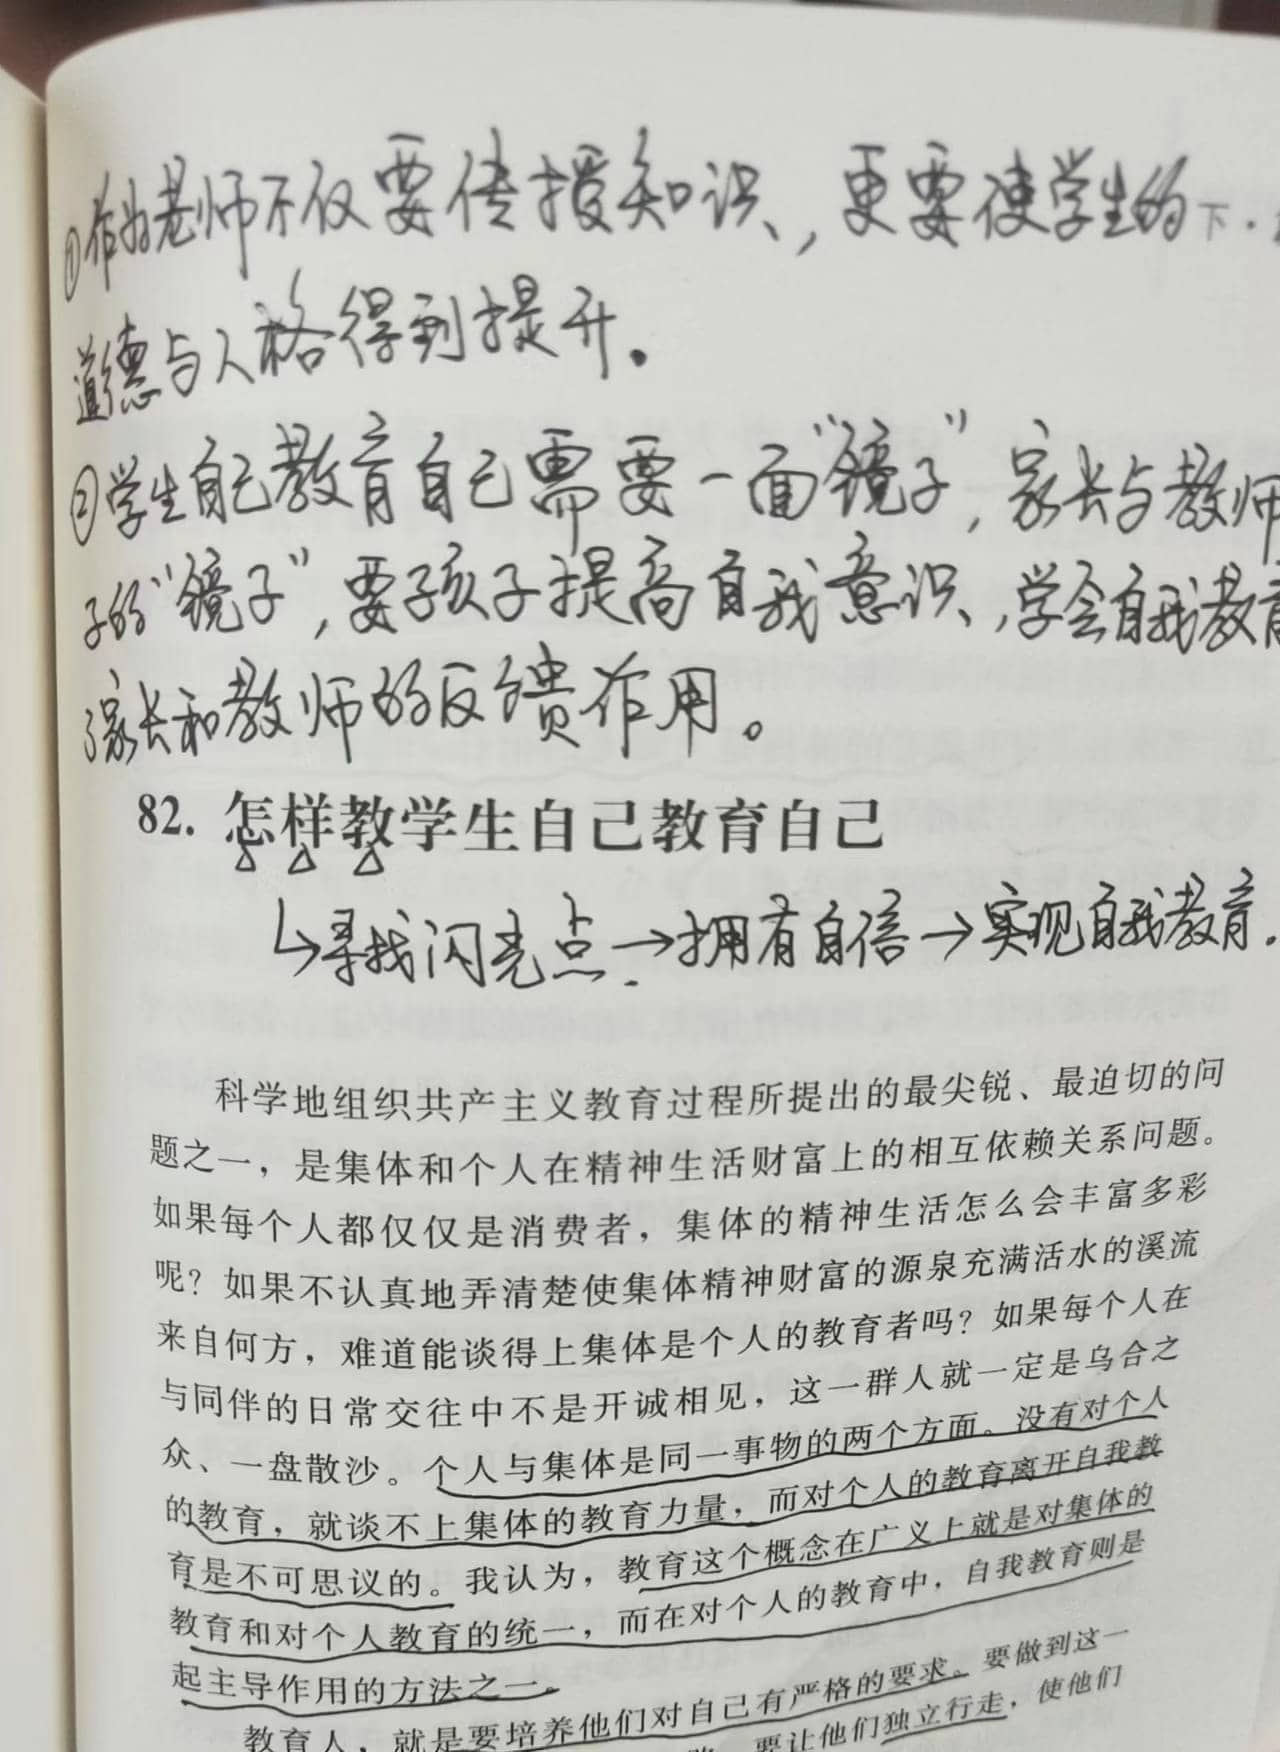 ①作为老师不仅要传授知识，更要使学生的
道德与人格得到提升。
②学生自己教育自己需要一面“镜子”，家长与教师
子的“镜子”，要孩子提高自我意识，学会自我教育
家长和教师的反馈作用。
82. 怎样教学生自己教育自己
↳寻找闪亮点→拥有自信→实现自我教育.
科学地组织共产主义教育过程所提出的最尖锐、最迫切的问
题之一，是集体和个人在精神生活财富上的相互依赖关系问题。
如果每个人都仅仅是消费者，集体的精神生活怎么会丰富多彩
呢？如果不认真地弄清楚使集体精神财富的源泉充满活水的溪流
来自何方，难道能谈得上集体是个人的教育者吗？如果每个人在
与同伴的日常交往中不是开诚相见，这一群人就一定是乌合之
众、一盘散沙。个人与集体是同一事物的两个方面。没有对个人
的教育，就谈不上集体的教育力量，而对个人的教育离开自我教
育是不可思议的。我认为，教育这个概念在广义上就是对集体的
教育和对个人教育的统一，而在对个人的教育中，自我教育则是
起主导作用的方法之一。
教育人，就是要培养他们对自己有严格的要求。要做到这一
要让他们独立行走，使他们